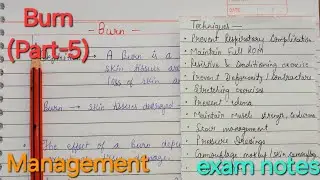 Burn
(Part-5)
Burn -
A Burn is a
skin tissues are
loss of skin
Burn → skin tissues destroyed
The effect of a burn depe
Management
Techniques —
Prevent Respiratory Complication
Maintain Full ROM
Resistive & Conditioning exercise
Prevent Deformity / contracture
Stretching exercises
Prevent edema
Maintain muscle strength, endurance
Scar management
Pressure Dressings
Camouflage makeup / skin camouflage
exam notes